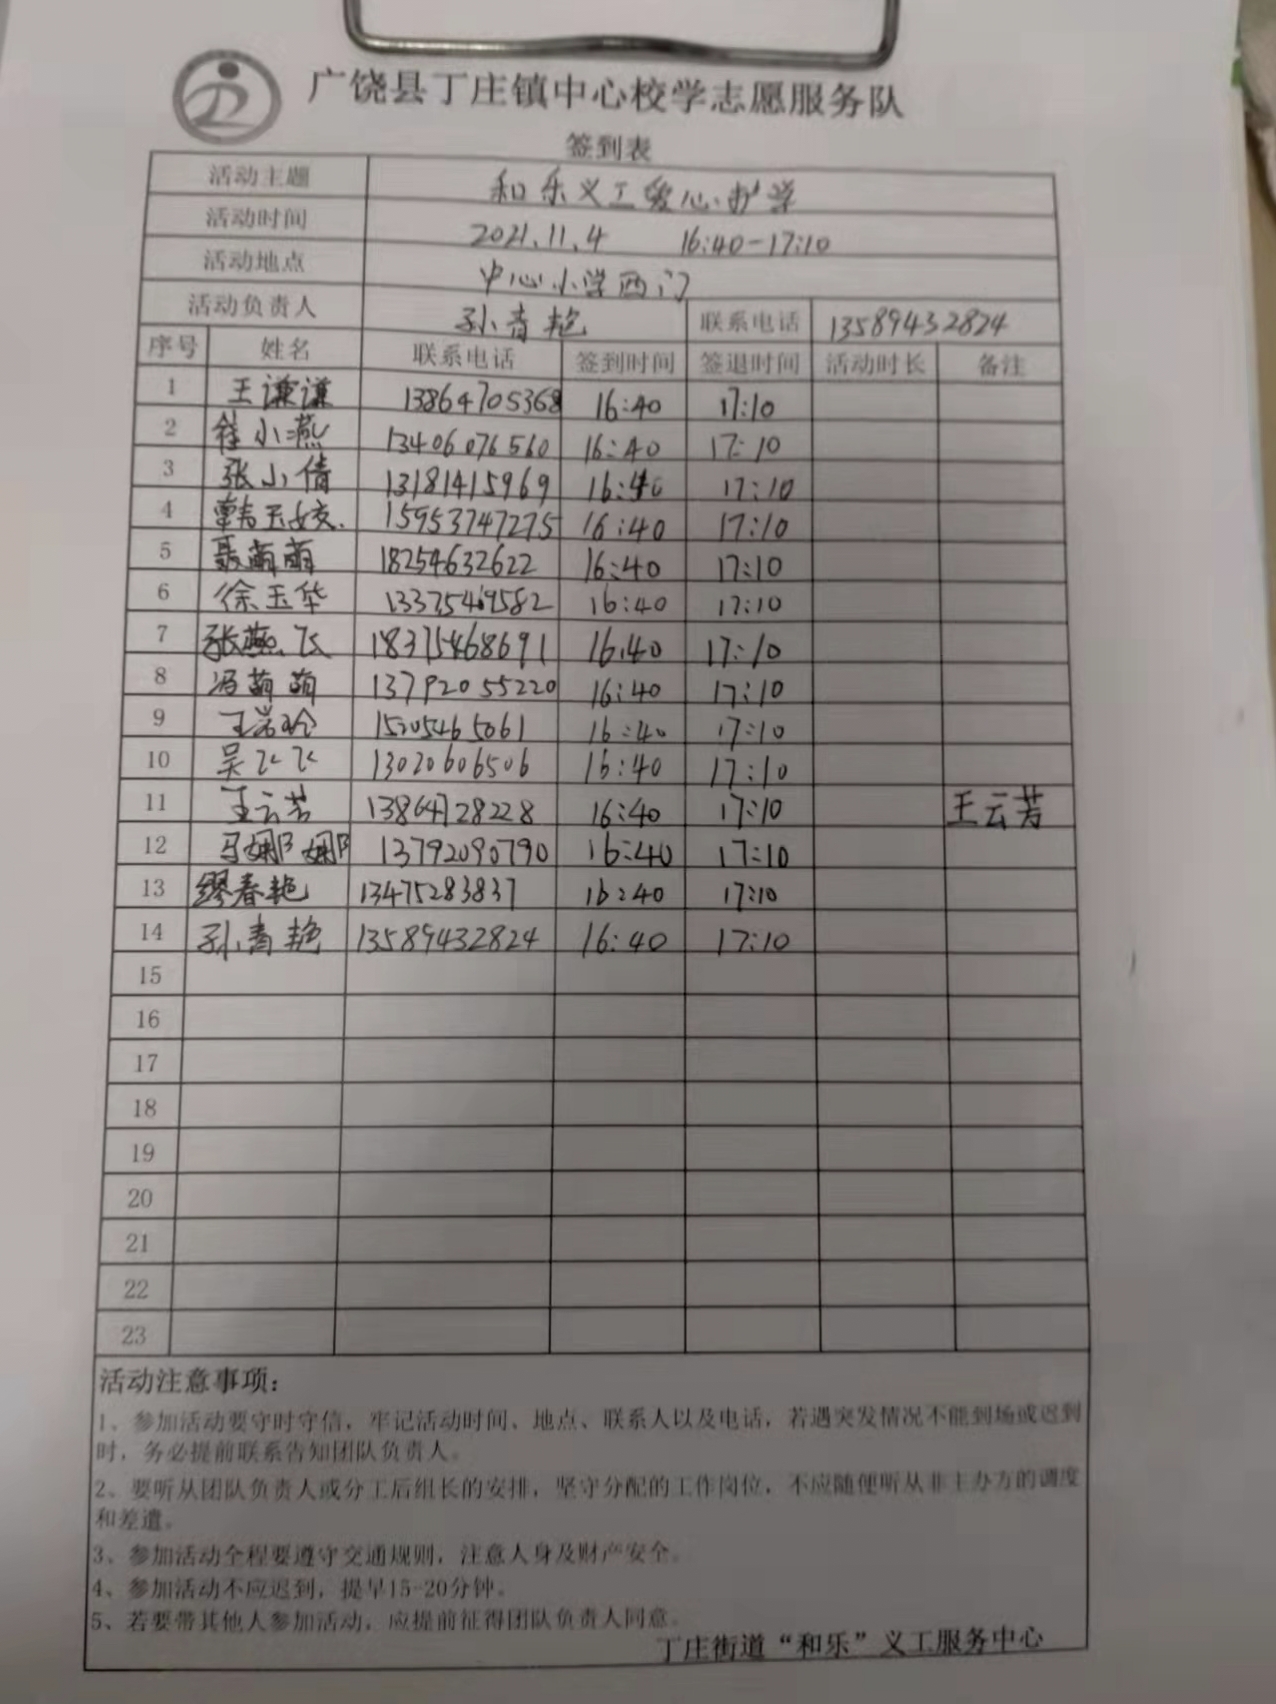 广饶县丁庄镇中心校学志愿服务队
签到表
活动主题 和乐义工爱心护学
活动时间 2021.11.4 16:40-17:10
活动地点 中心小学西门
活动负责人 孙青艳 联系电话 13589432824
序号 姓名 联系电话 签到时间 签退时间 活动时长 备注
1 王谦谦 13864705368 16:40 17:10
2 小燕 13406076560 16:40 17:10
3 张小倩 13181415969 16:40 17:10
4 韩玉姣 15953747275 16:40 17:10
5 聂萌萌 18254632622 16:40 17:10
6 徐玉华 16:40 17:10
7 张燕飞 18375468691 16:40 17:10
8 冯萌萌 13792055220 16:40 17:10
9 王 15205465061 16:40 17:10
10 吴飞飞 13020606506 16:40 17:10
11 王云芳 13864728228 16:40 17:10 王云芳
12 马娜娜 13792090790 16:40 17:10
13 缪春艳 13475283837 16:40 17:10
14 孙青艳 13589432824 16:40 17:10
15
16
17
18
19
20
21
22
23
活动注意事项：
1、参加活动要守时守信，牢记活动时间、地点、联系人以及电话，若遇突发情况不能到场或迟到
时，务必提前联系告知团队负责人。
2、要听从团队负责人或分工后组长的安排，坚守分配的工作岗位，不应随便听从非主办方的调度
和差遣。
3、参加活动全程要遵守交通规则，注意人身及财产安全。
4、参加活动不应迟到，提早15-20分钟。
5、若要带其他人参加活动，应提前征得团队负责人同意。
丁庄街道“和乐”义工服务中心